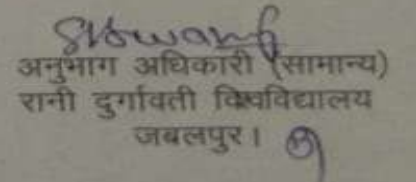 अनुभाग अधिकारी (सामान्य)
रानी दुर्गावती विश्वविद्यालय
जबलपुर।